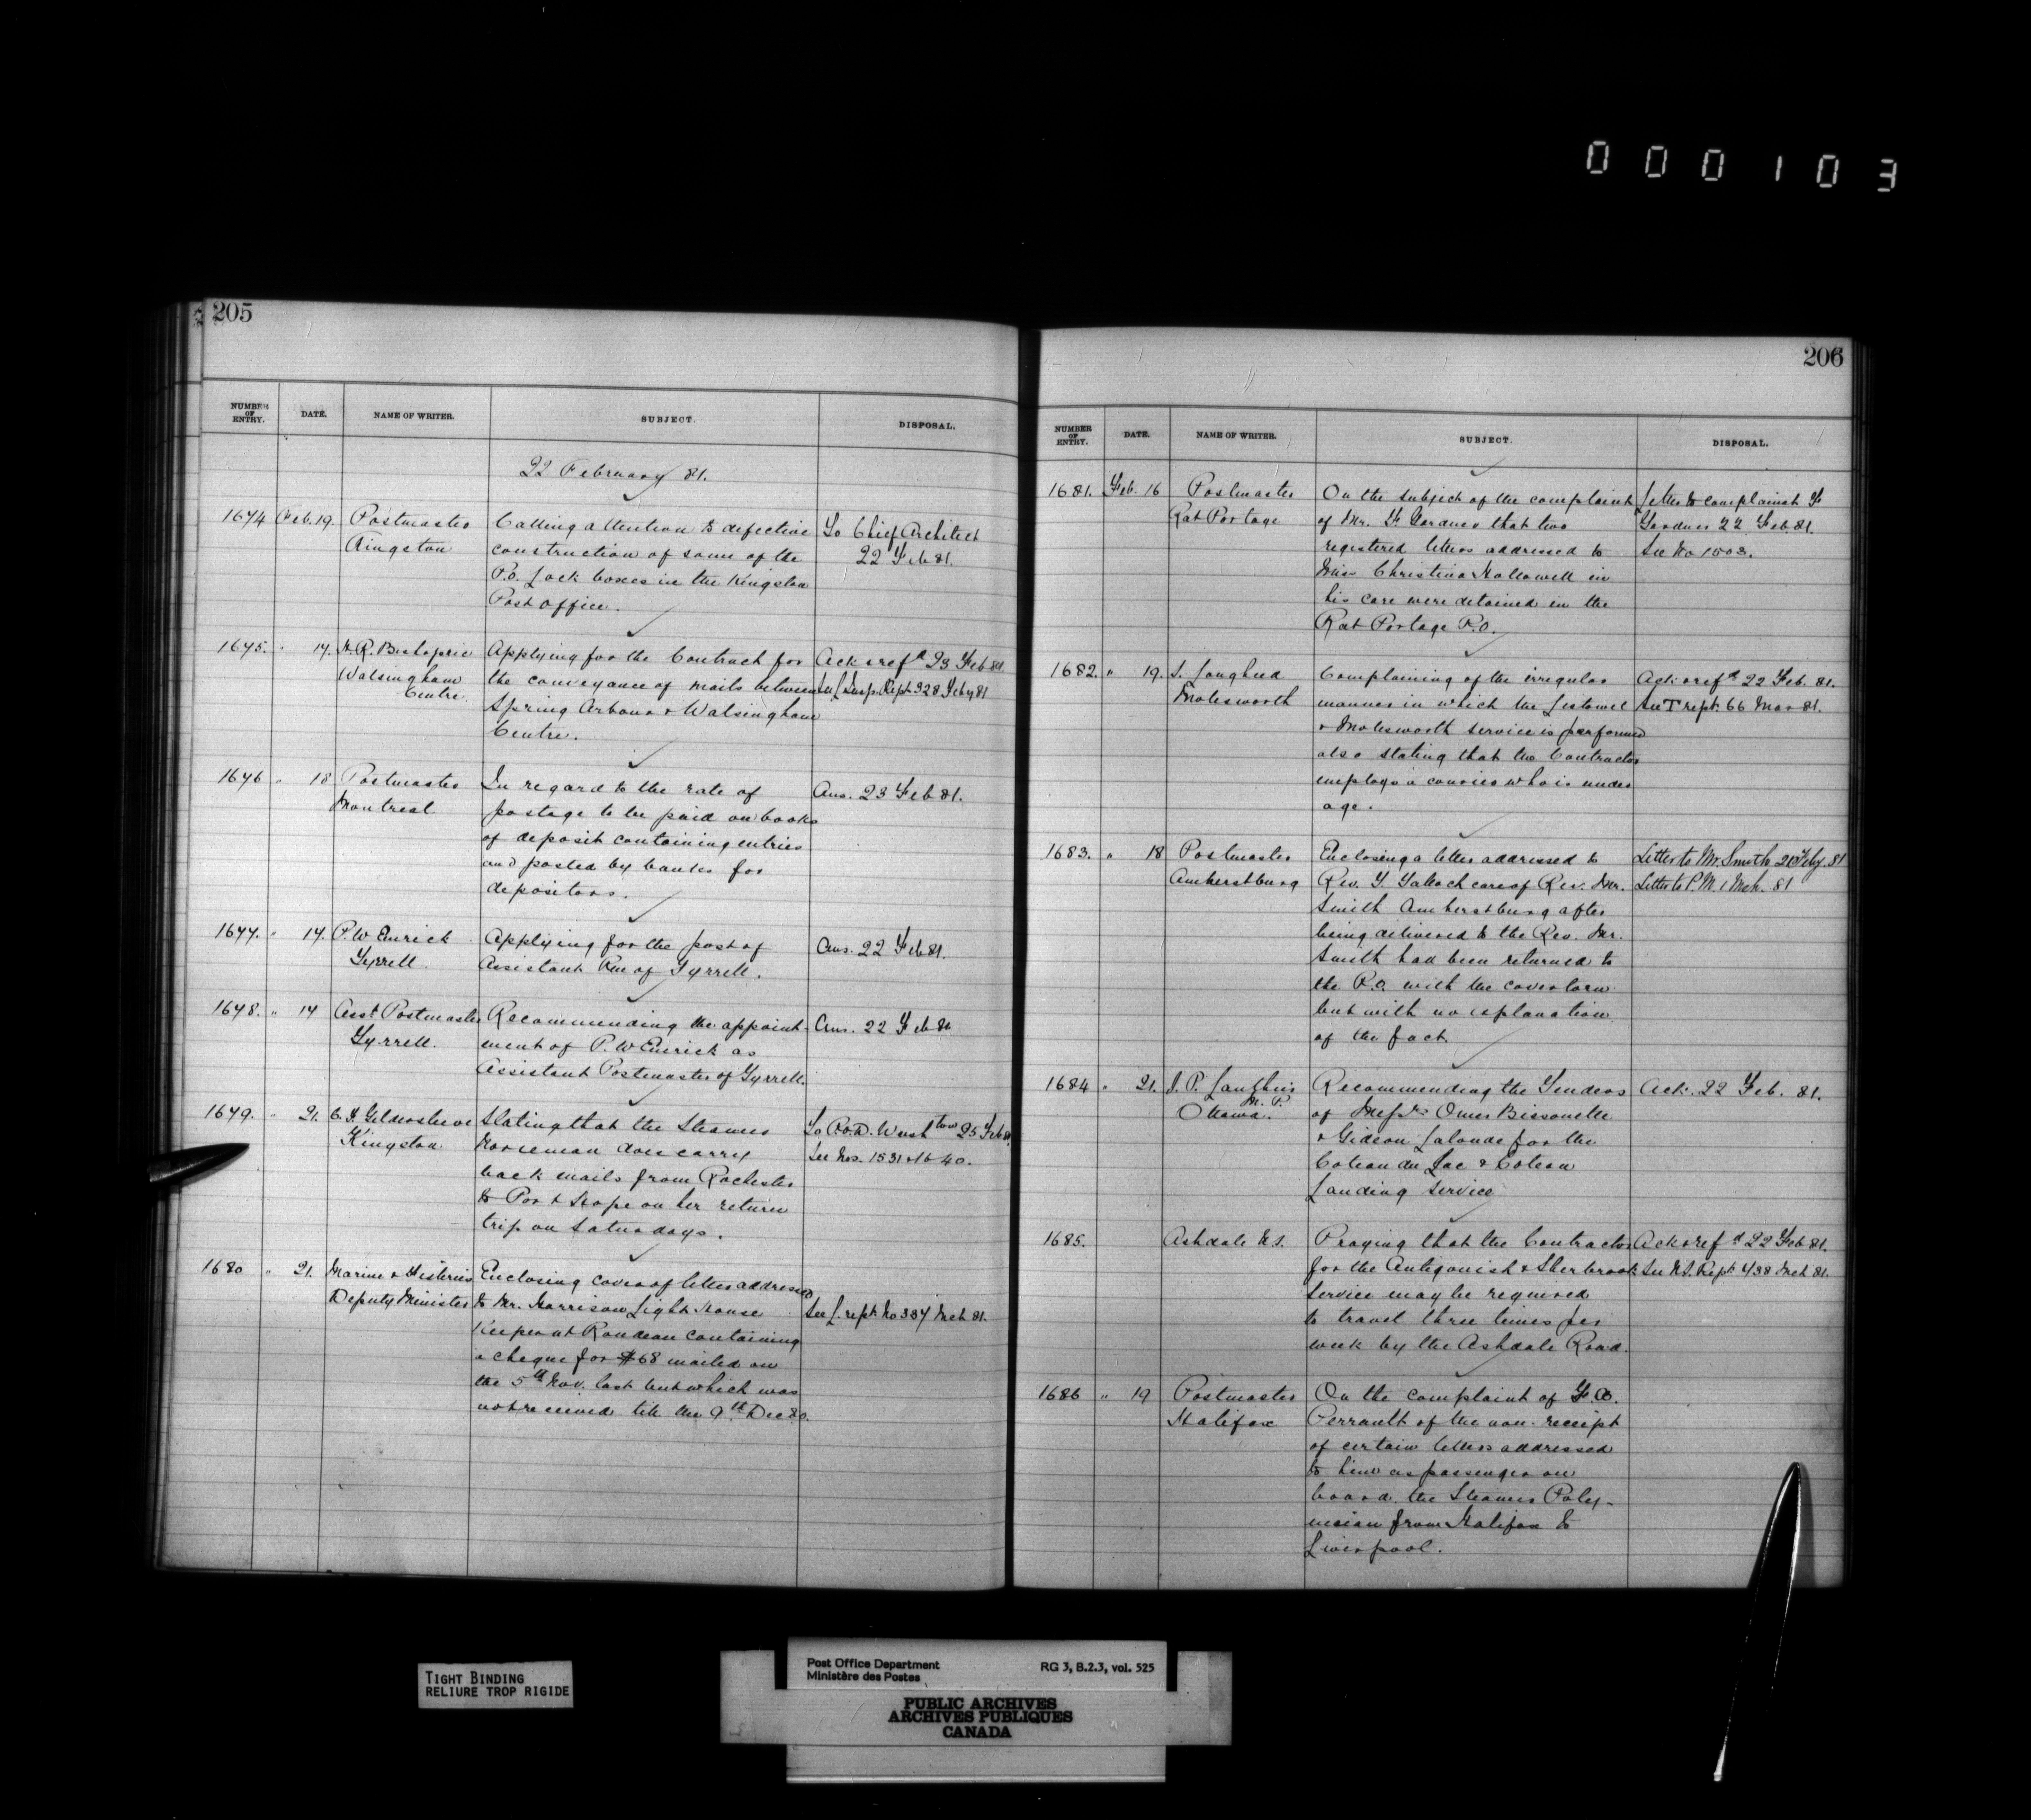 000103
205
NUMBER OF ENTRY. DATE. NAME OF WRITER. SUBJECT. DISPOSAL.
22 February 81.
1674 Feb. 19. Postmaster Calling attention to defective To Chief Architect
Kingston construction of some of the 22 Feb 81.
P.O. Lock boxes in the Kingston
Post office.
1675. " 17. Walsingham Applying for the Contract for Ack & refd 23 Feb 81
Centre. the conveyance of mails between See L Insp. Rept. 328 Feby 81
Spring Arbour & Walsingham
Centre.
1676 " 18 Postmaster In regard to the rate of Ans. 23 Feb 81.
Montreal postage to be paid on books
of deposit containing entries
and posted by banks for
depositors.
1677. " 17. P. W. Emrick Applying for the post of Ans. 22 Feb 81.
Tyrrell. Assistant Pm of Tyrrell.
1678. " 17 Asst Postmaster Recommending the appoint- Ans. 22 Feb 81
Tyrrell. ment of P. W Emrick as
Assistant Postmaster of Tyrrell.
1679. " 21. C. F. Gildersleeve Stating that the Steamer To P.O.D. Washton 25 Feb 81.
Kingston. Norseman does carry See Nos. 1531 & 1640.
back mails from Rochester
to Port Hope on her return
trip on Saturdays.
1680 " 21. Marine & Fisheries Enclosing cover of letter addressed
Deputy Minister to Mr. Harrison Light House See L. rept. No 387 Mch 81.
Keeper at Rondeau containing
a cheque for $68 mailed on
the 5th Nov. last but which was
not received till the 9th Dec 80.
206
NUMBER OF ENTRY. DATE. NAME OF WRITER. SUBJECT. DISPOSAL.
1681. Feb. 16 Postmaster On the subject of the complaint Letter to complainant F
Rat Portage of Mr. F Gardner that two Gardner 22 Feb. 81.
registered letters addressed to See No 1503.
Miss Christina Hallowell in
his care were detained in the
Rat Portage P.O.
1682. " 19. Complaining of the irregular Ack & refd 22 Feb. 81.
Molesworth manner in which the Listowel See T rept. 66 Mar 81.
& Molesworth service is performed
also stating that the Contractor
employs a courier who is under
age.
1683. " 18 Postmaster Enclosing a letter addressed to Letter to Mr. Smith 21 Feby. 81
Amherstburg Rev. care of Rev. Mr. Letter to P.M. 1 Mch. 81
Smith Amherstburg after
being delivered to the Rev. Mr.
Smith had been returned to
the P.O. with the cover torn
but with no explanation
of the fact.
1684 " 21. M. P. Recommending the Tenders Ack. 22 Feb. 81.
Ottawa. of Messrs Omer Bissonette
& Gideon Lalonde for the
Coteau du Lac & Coteau
Landing service
1685. Ashdale N.S. Praying that the Contractor Ack & refd 22 Feb 81.
for the Antigonish & Sherbrook See N.S. Rept. 438 Mch 81.
Service may be required
to travel three times per
week by the Ashdale Road.
1686 " 19 Postmaster On the complaint of
Halifax Perrault of the non-receipt
of certain letters addressed
to him as passenger on
board the Steamer Poly-
nesian from Halifax to
Liverpool.
TIGHT BINDING
RELIURE TROP RIGIDE
Post Office Department
Ministère des Postes
RG 3, B.2.3, vol. 525
PUBLIC ARCHIVES
ARCHIVES PUBLIQUES
CANADA